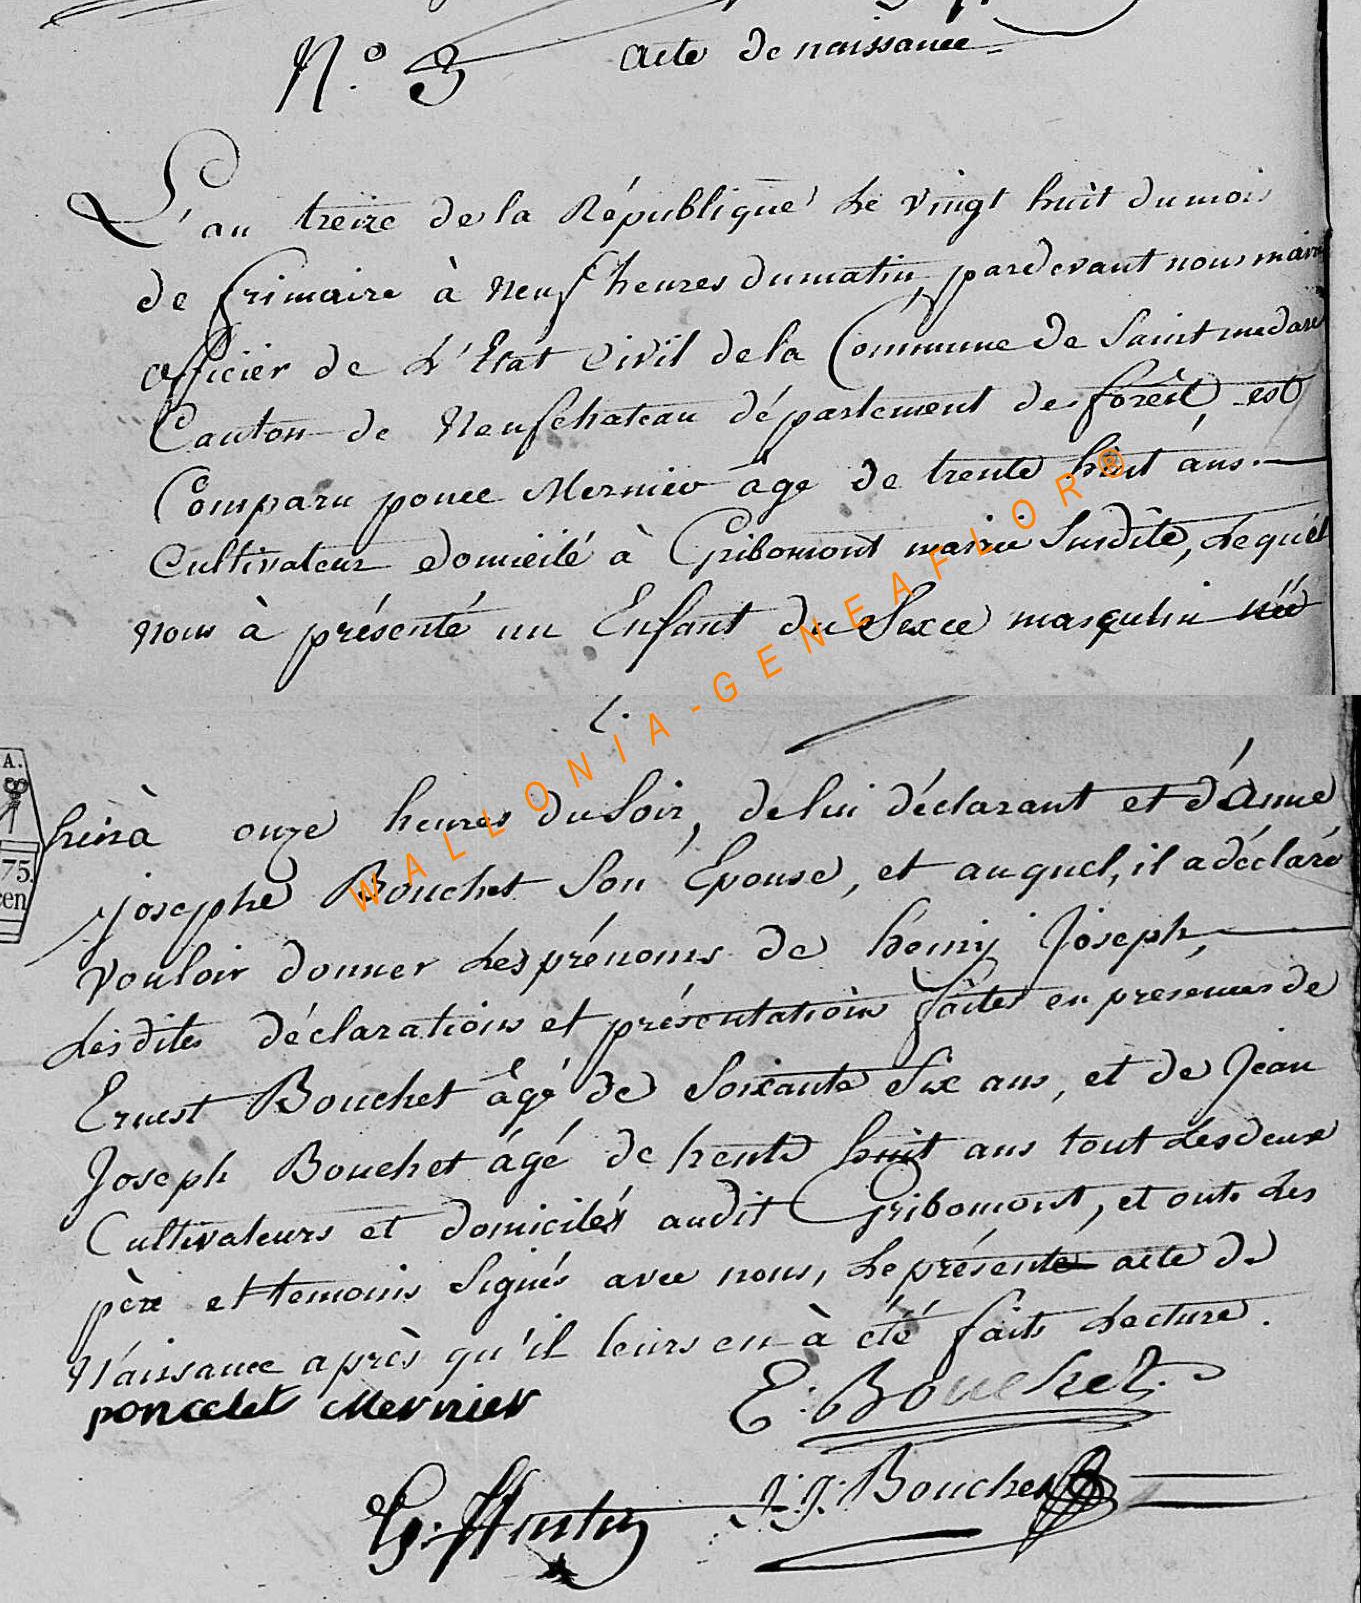 N.o 3 Acte de naissance =
L'an treize de la République le vingt huit du mois
de frimaire à neuf heures du matin, pardevant nous maire
officier de L'Etat Civil de la Commune de Saint medard
Canton de Neufchateau département des forêt, est
Comparu ponce Mernier âge de trente huit ans.
Cultivateur domicilé à Gribomont mairie Susdite, Lequel
nous à présenté un Enfant du Sexce masqulin née
WALLONIA-GENEAFLOR®
A.
75.
cen
hier à onze heures du Soir, de lui déclarant et d'Anne
josephe Bouchet Son Epouse, et auquel, il a déclaré
vouloir donner Les prénoms de henry Joseph,
Lesdites déclarations et présentations faites en presences de
Ernest Bouchet âgé de Soixante Six ans, et de Jean
Joseph Bouchet âgé de trente huit ans tout Les deux
Cultivateurs et domicilés audit Gribomont, et onts Les
père et temoins Signés avec nous, Le présente acte de
Naissance après qu'il leurs en à été faite Lecture.
poncelet Mernier E: Bouchet
J: J: Bouchet